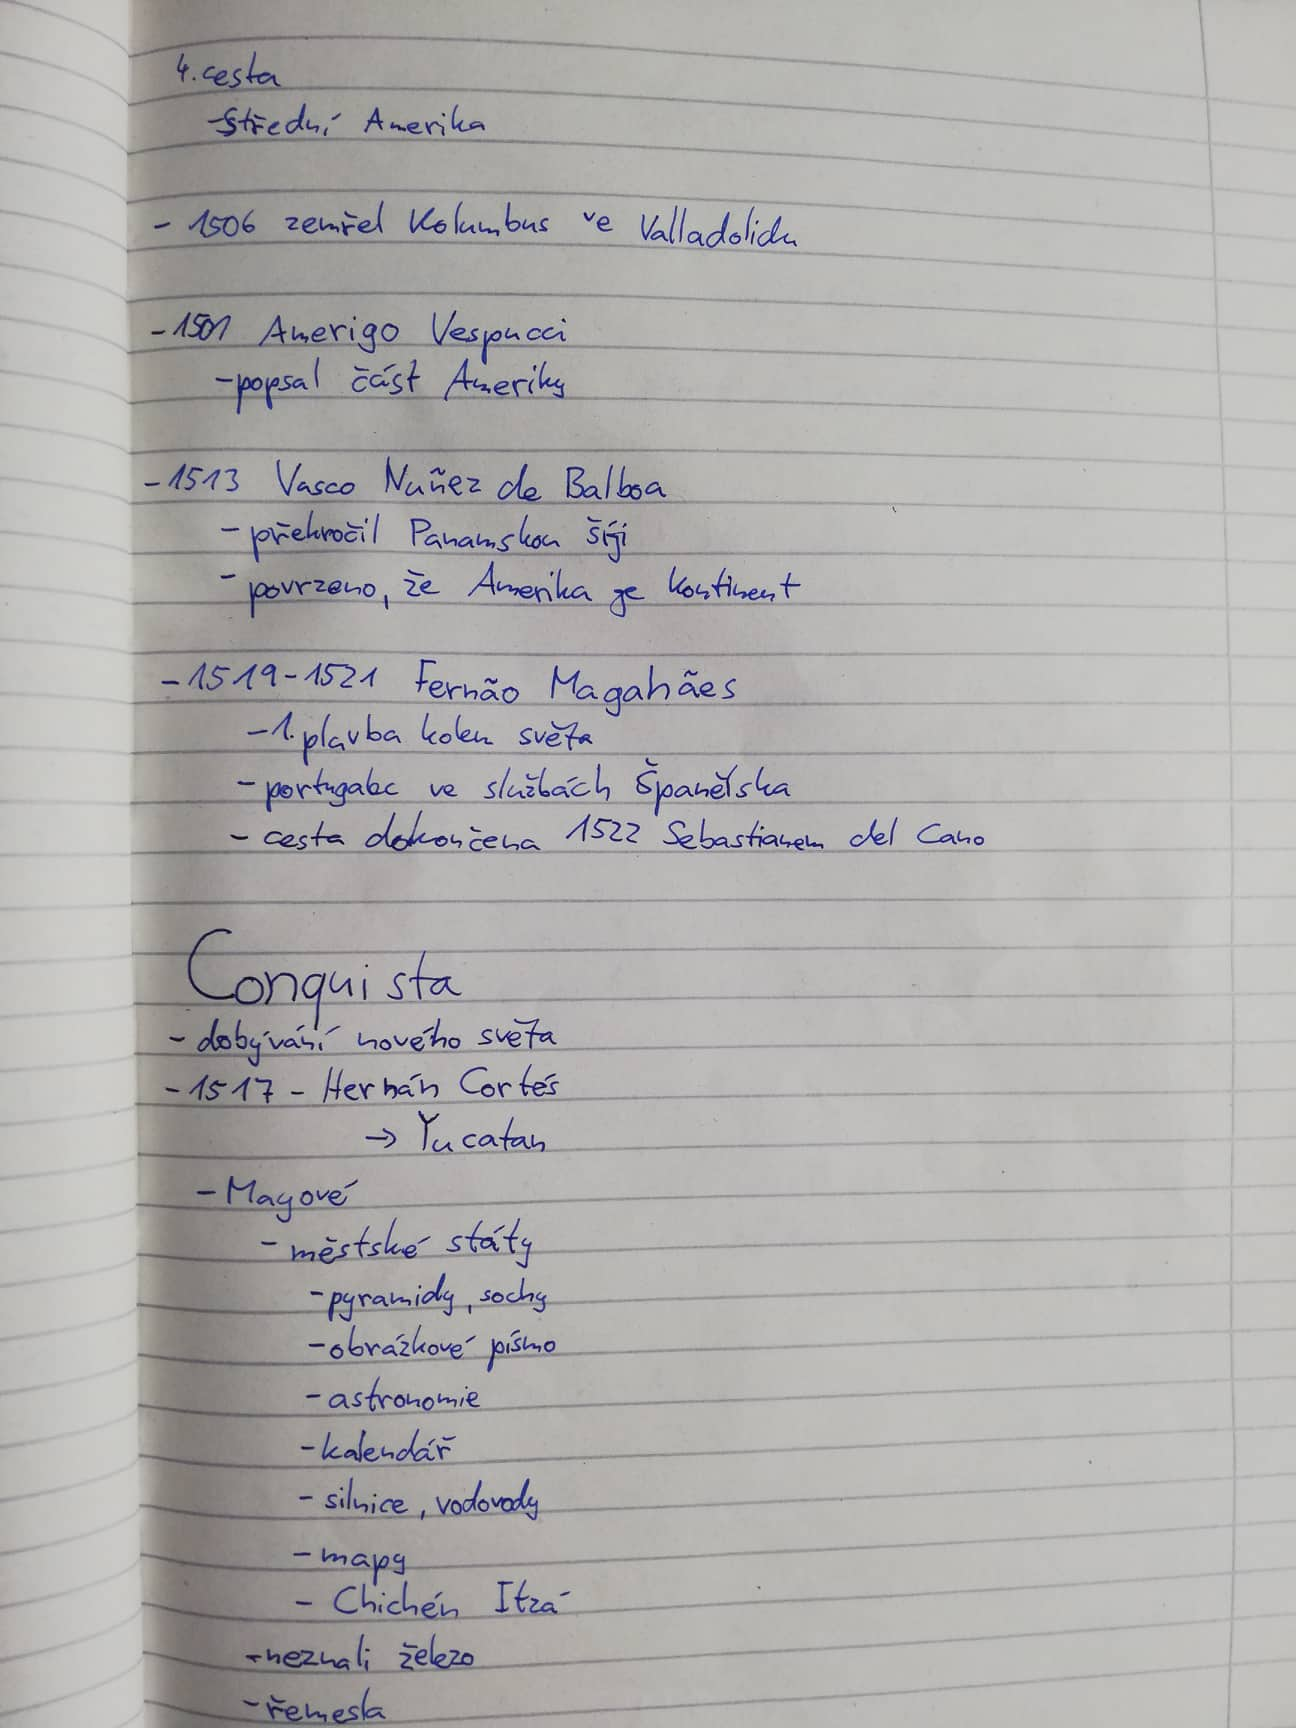 4. cesta
-Střední Amerika
- 1506 zemřel Kolumbus ve Valladolidu
- 1501 Amerigo Vespucci
-popsal část Ameriky
- 1513 Vasco Nuñez de Balboa
- překročil Panamskou šíji
- povrzeno, že Amerika je kontinent
- 1519-1521 Fernão Magahães
-1. plavba kolem světa
- portugalec ve službách Španělska
- cesta dokončena 1522 Sebastianem del Cano
Conquista
- dobývání nového světa
- 1517 - Hernán Cortés
→ Yucatan
- Mayové
- městské státy
- pyramidy, sochy
- obrázkové písmo
- astronomie
- kalendář
- silnice, vodovody
- mapy
- Chichén Itzá
-neznali železo
- řemesla